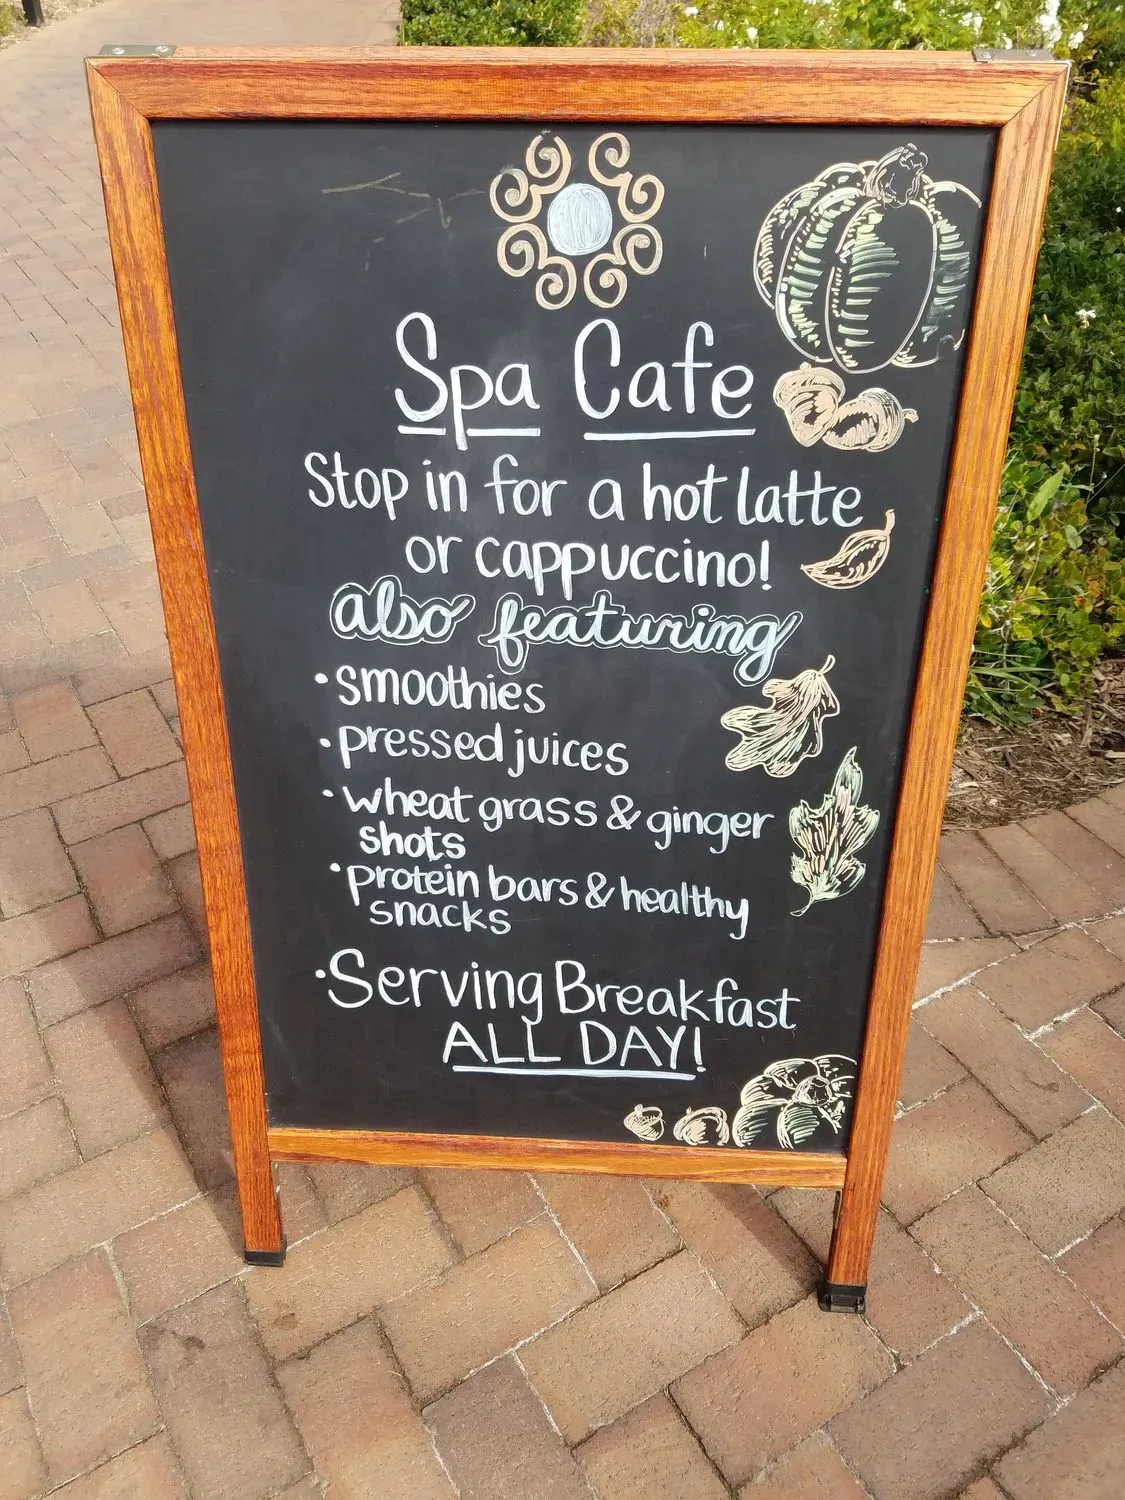 Spa Cafe
Stop in for a hot latte
or cappuccino!
also featuring
• smoothies
• pressed juices
• wheat grass & ginger
shots
• protein bars & healthy
snacks
• Serving Breakfast
ALL DAY!